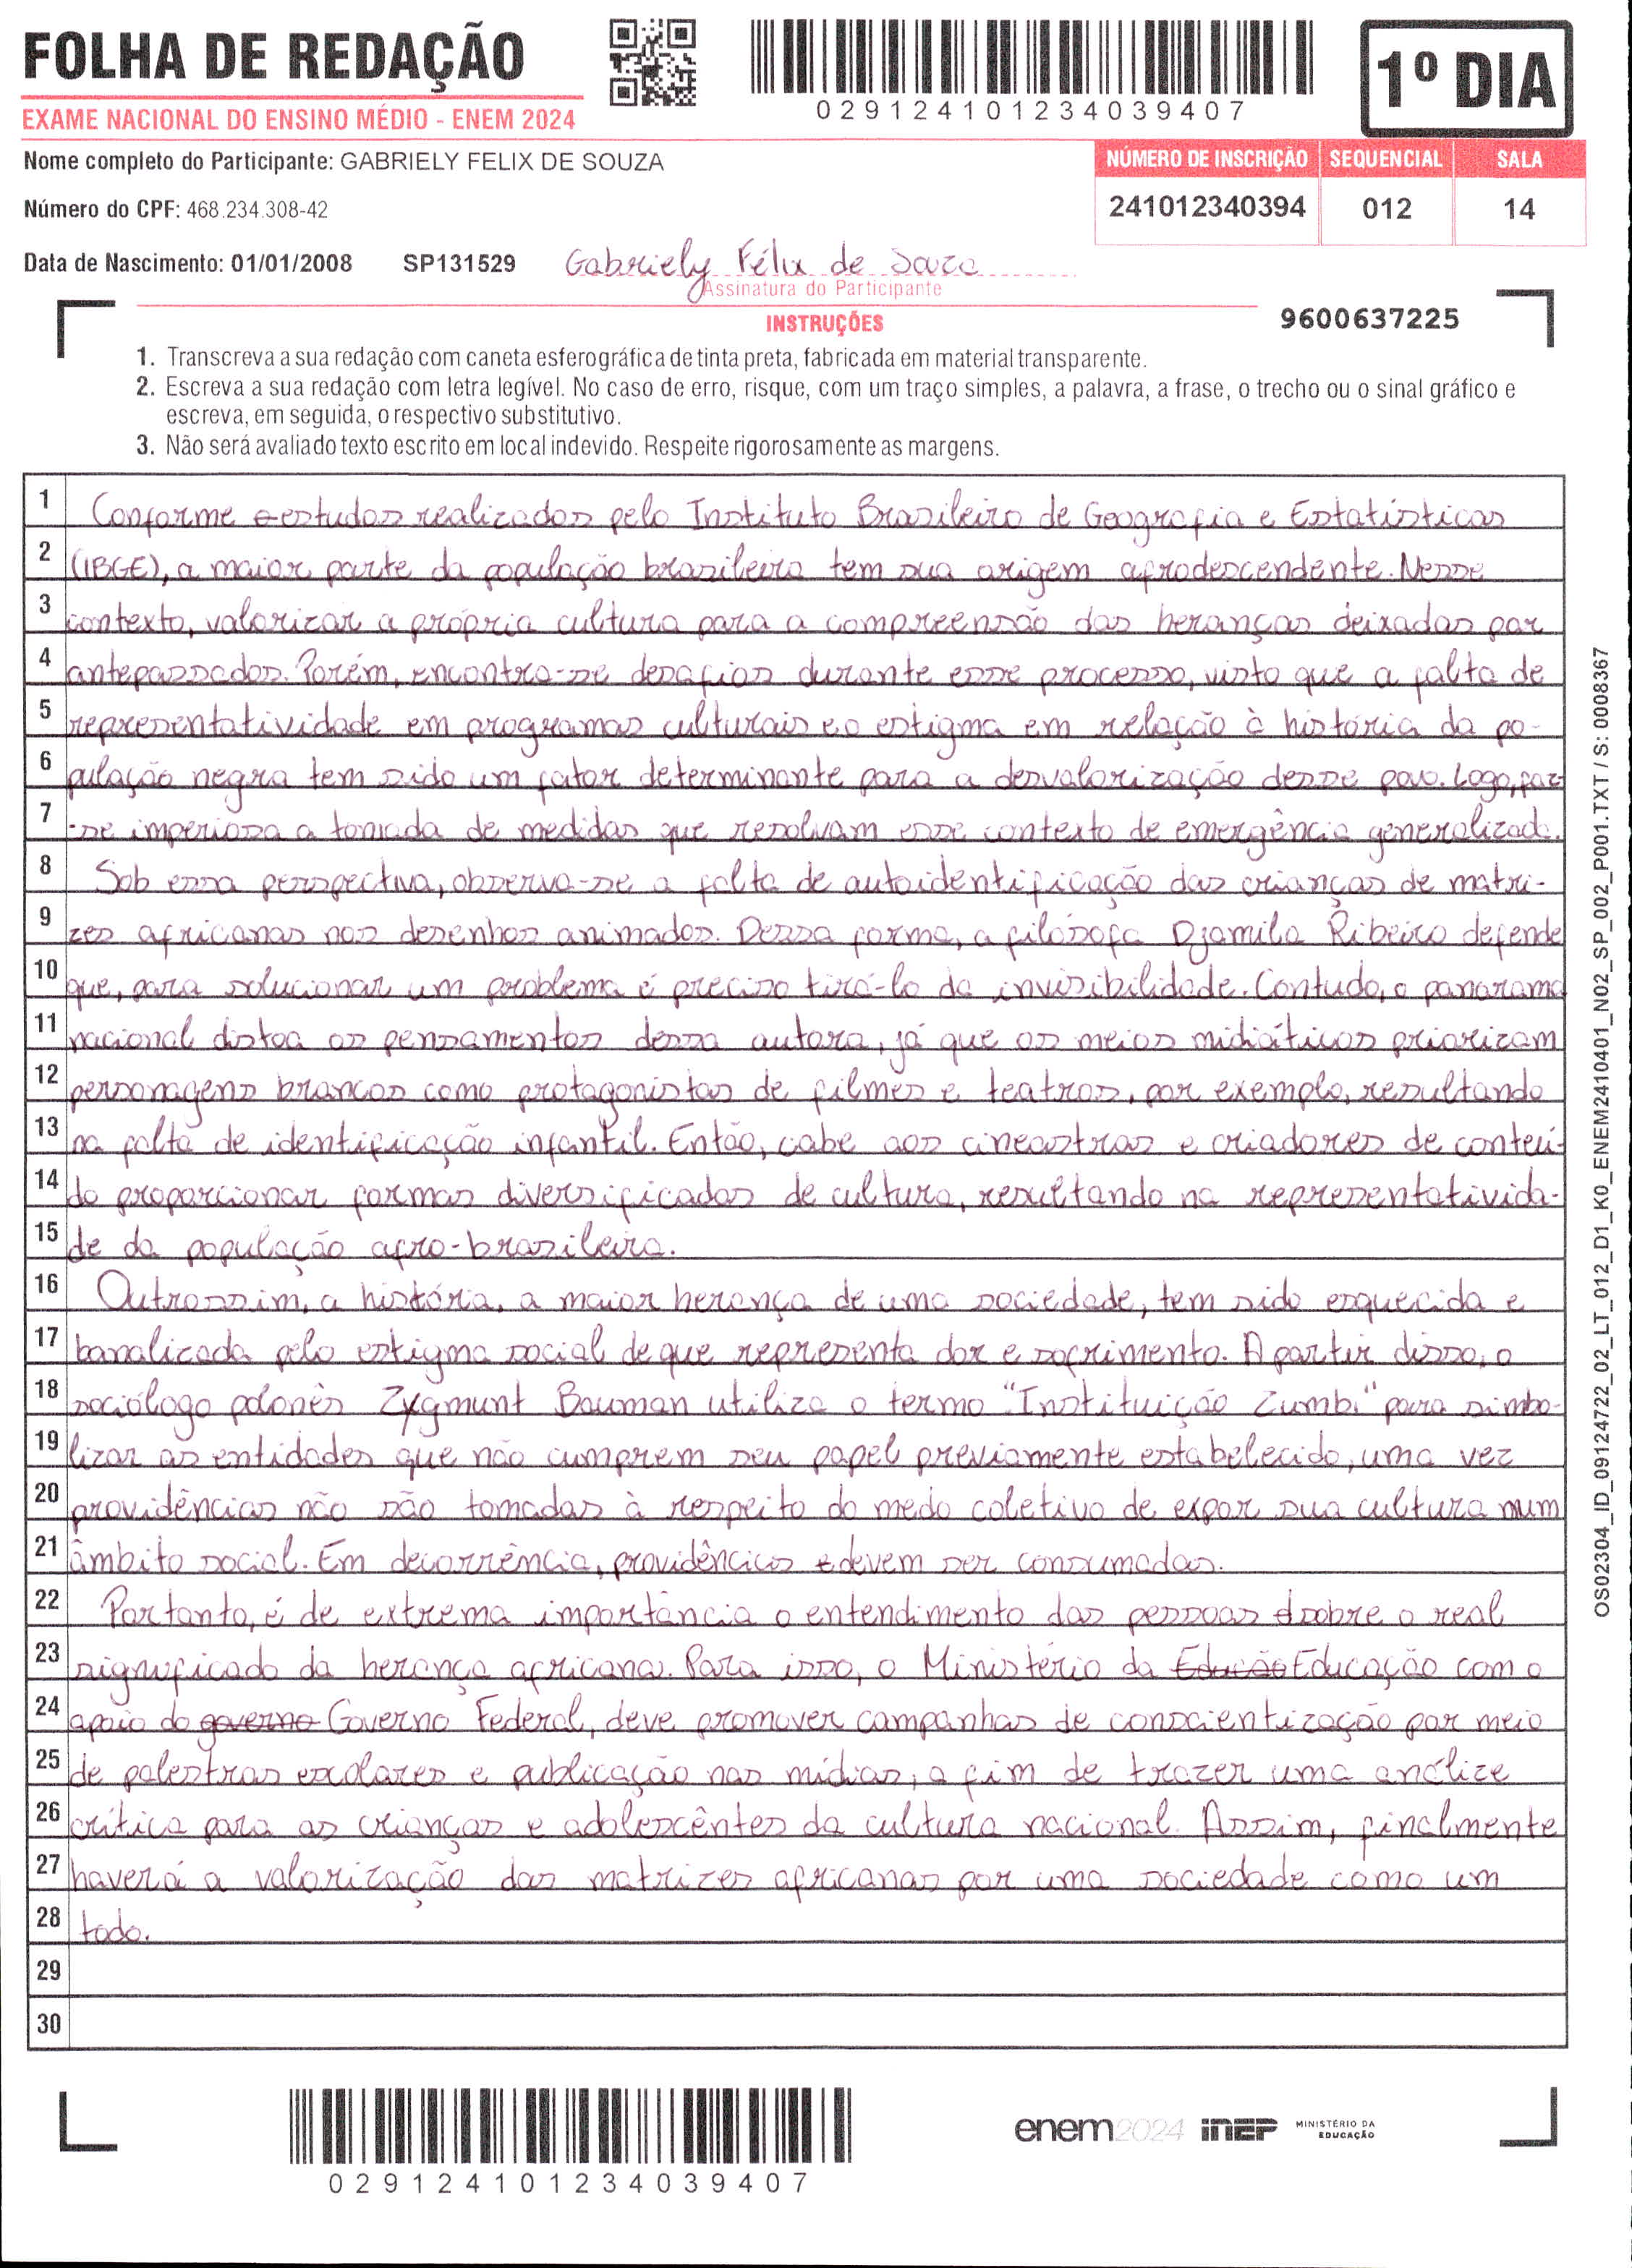 FOLHA DE REDAÇÃO
EXAME NACIONAL DO ENSINO MÉDIO - ENEM 2024
029124101234039407
1º DIA
Nome completo do Participante: GABRIELY FELIX DE SOUZA
NÚMERO DE INSCRIÇÃO SEQUENCIAL SALA
Número do CPF: 468.234.308-42
241012340394 012 14
Data de Nascimento: 01/01/2008 SP131529 Gabriely Félix de Souza
Assinatura do Participante
INSTRUÇÕES
9600637225
1. Transcreva a sua redação com caneta esferográfica de tinta preta, fabricada em material transparente.
2. Escreva a sua redação com letra legível. No caso de erro, risque, com um traço simples, a palavra, a frase, o trecho ou o sinal gráfico e
escreva, em seguida, o respectivo substitutivo.
3. Não será avaliado texto escrito em local indevido. Respeite rigorosamente as margens.
1 Conforme e estudos realizados pelo Instituto Brasileiro de Geografia e Estatísticas
2 (IBGE), a maior parte da população brasileira tem sua origem afrodescendente. Nesse
3 contexto, valorizar a própria cultura para a compreensão das heranças deixadas por
4 antepassados. Porém, encontra-se desafios durante esse processo, visto que a falta de
5 representatividade em programas culturais e o estigma em relação à história da po-
6 pulação negra tem sido um fator determinante para a desvalorização desse povo. Logo, faz-
7 -se imperiosa a tomada de medidas que resolvam esse contexto de emergência generalizada.
8 Sob essa perspectiva, observa-se a falta de autoidentificação das crianças de matri-
9 zes africanas nos desenhos animados. Dessa forma, a filósofa Djamila Ribeiro defende
10 que, para solucionar um problema é preciso tirá-lo da invisibilidade. Contudo, o panorama
11 nacional distoa os pensamentos dessa autora, já que os meios midiáticos priorizam
12 personagens brancos como protagonistas de filmes e teatros, por exemplo, resultando
13 na falta de identificação infantil. Então, cabe aos cineastras e criadores de conteú-
14 do proporcionar formas diversificadas de cultura, resultando na representativida-
15 de da população afro-brasileira.
16 Outrossim, a história, a maior herança de uma sociedade, tem sido esquecida e
17 banalizada pelo estigma social de que representa dor e sofrimento. A partir disso, o
18 sociólogo polonês Zygmunt Bauman utiliza o termo "Instituição Zumbi" para simbo-
19 lizar as entidades que não cumprem seu papel previamente estabelecido, uma vez
20 providências não são tomadas à respeito do medo coletivo de expor sua cultura num
21 âmbito social. Em decorrência, providências e devem ser consumadas.
22 Portanto, é de extrema importância o entendimento das pessoas d sobre o real
23 significado da herança africana. Para isso, o Ministério da Educão Educação com o
24 apoio do governo Governo Federal, deve promover campanhas de conscientização por meio
25 de palestras escolares e publicação nas mídias, a fim de trazer uma análize
26 crítica para as crianças e adolescêntes da cultura nacional. Assim, finalmente
27 haverá a valorização das matrizes africanas por uma sociedade como um
28 todo.
29
30
OS02304_ID_09124722_02_LT_012_D1_K0_ENEM2410401_N02_SP_002_P001.TXT / S: 0008367
029124101234039407
enem2024 inep MINISTÉRIO DA
EDUCAÇÃO